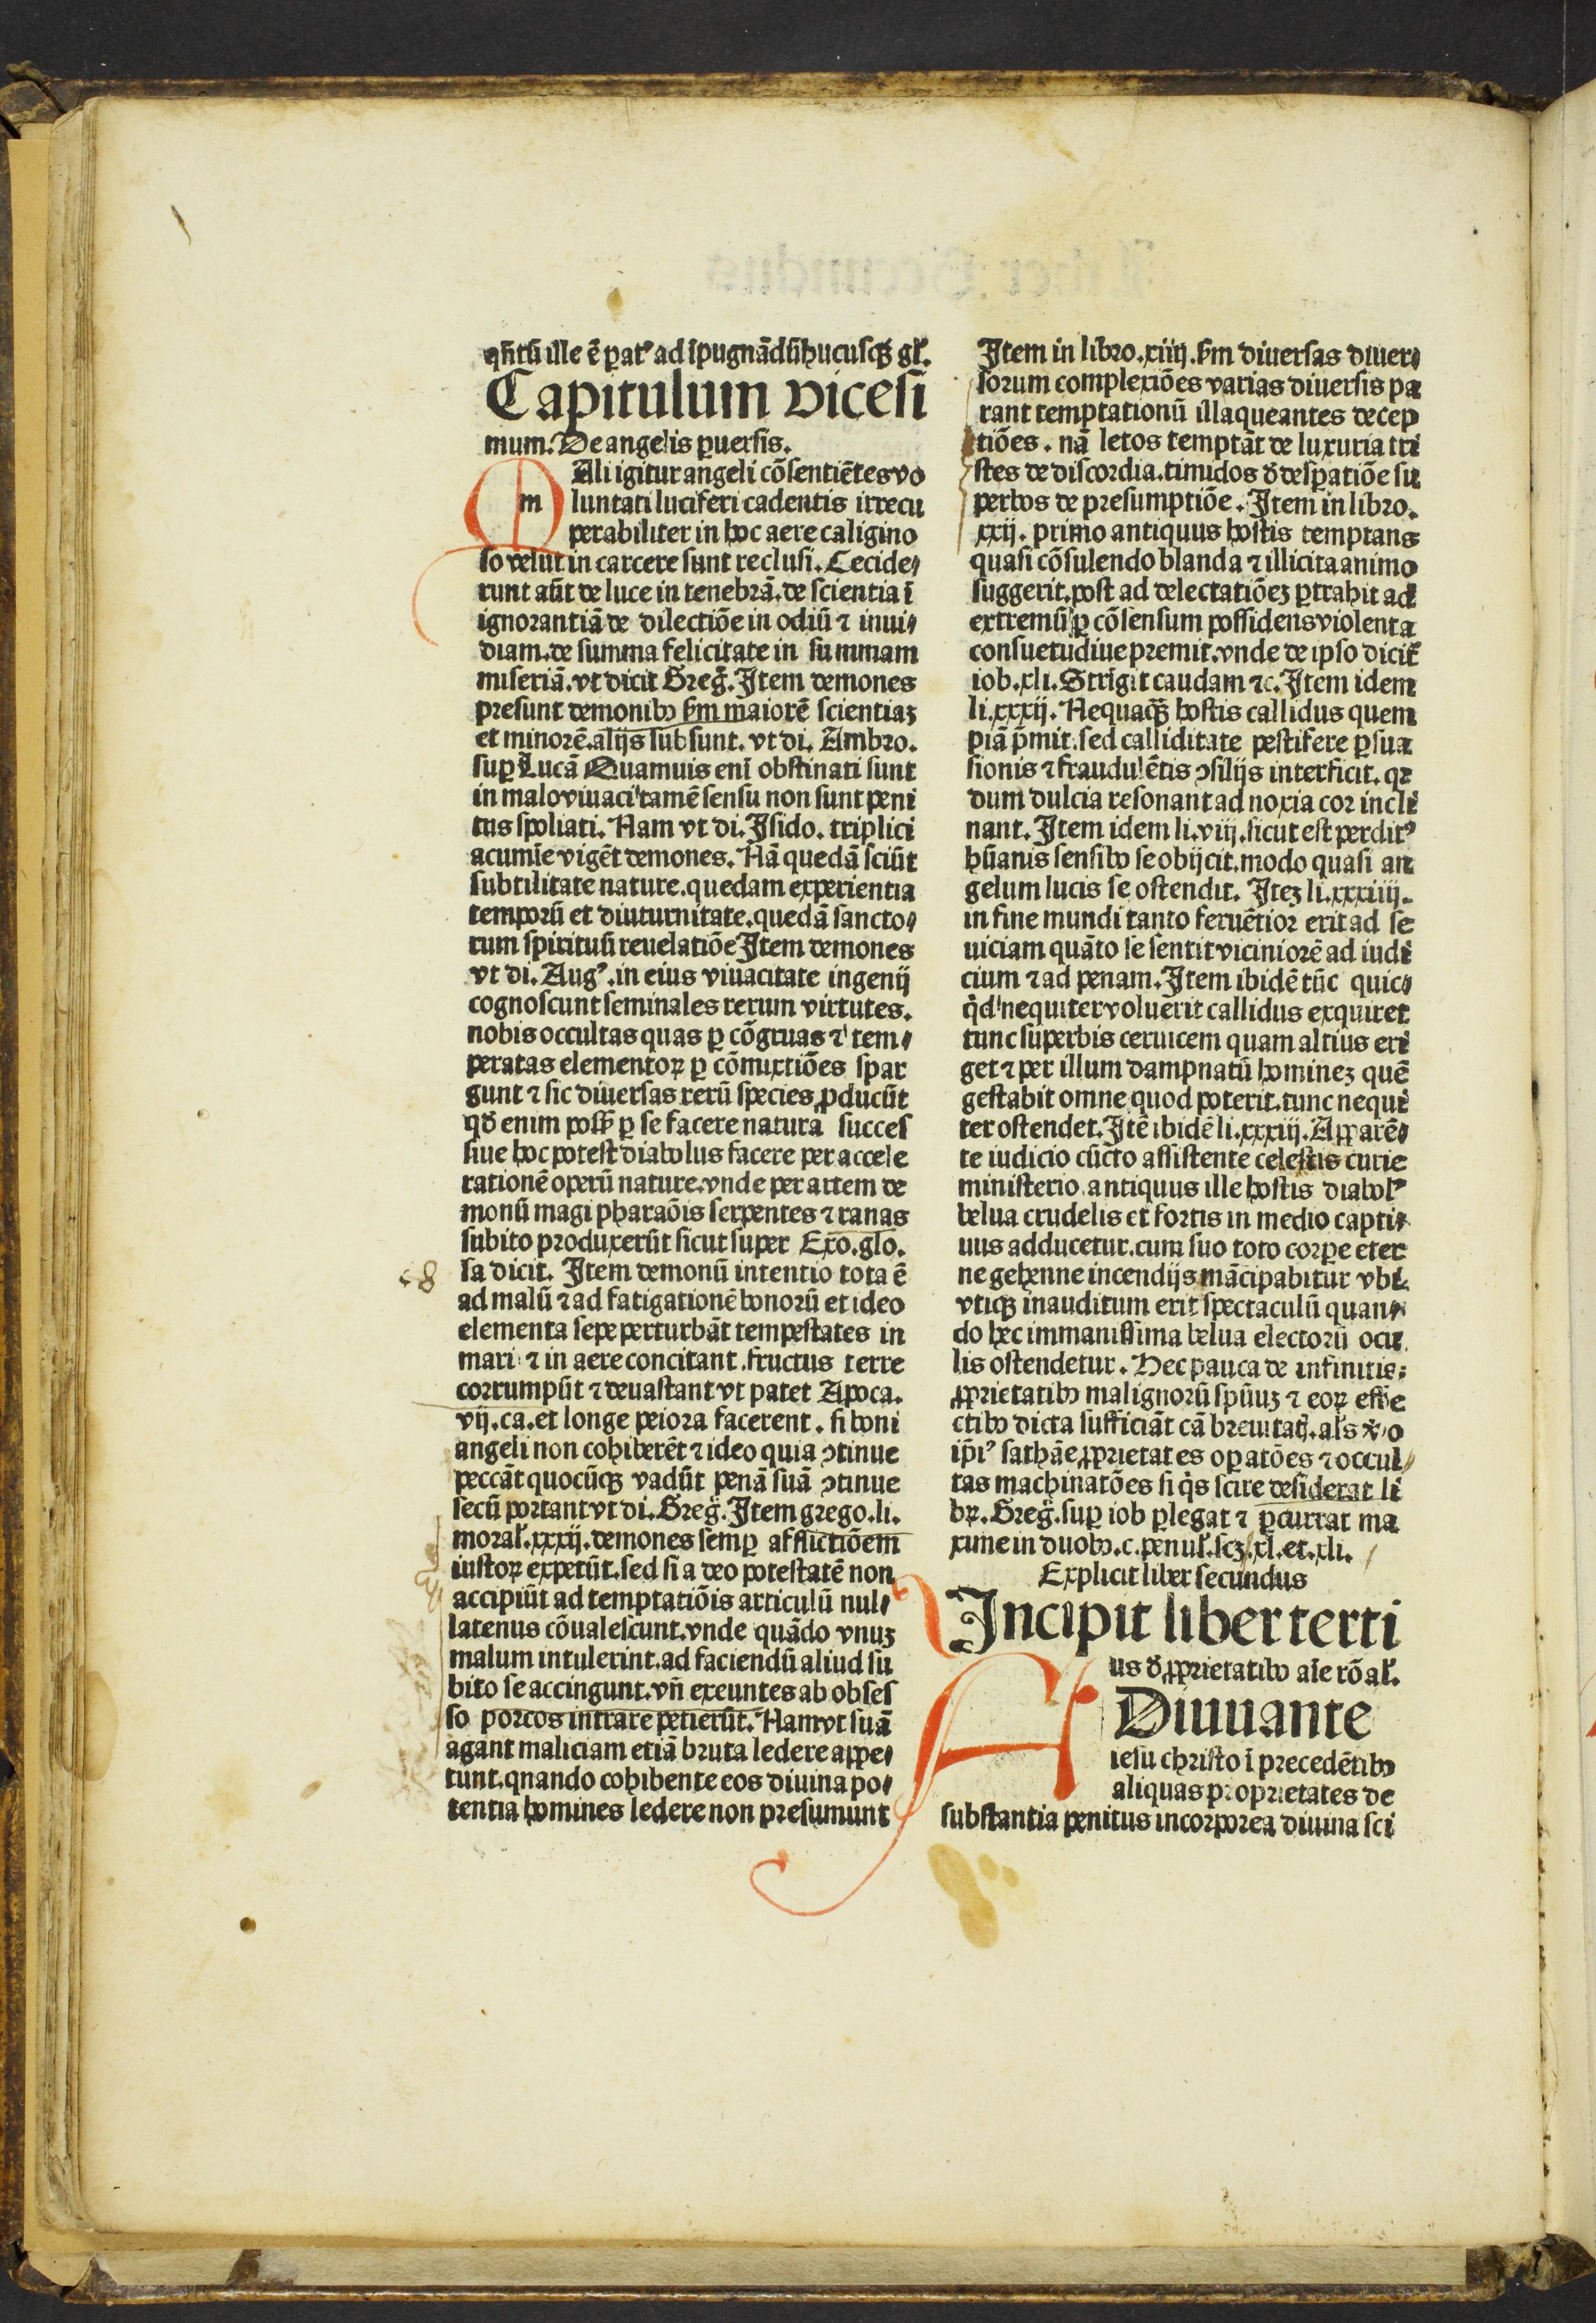 qñtũ ille ẽ ꝑatꝰ ad ĩpugnãdũ hucusqꝫ gl'.
Capitulum vicesi
mum. De angelis ꝑuersis.
Ali igitur angeli cõsentiẽtes vo
m luntati luciferi cadentis irrecu
perabiliter in hoc aere caligino
so velut in carcere sunt reclusi. Cecide⸗
runt aũt de luce in tenebrã. de scientia ĩ
ignorantiã de dilectiõe in odiũ ⁊ inui⸗
diam. de summa felicitate in summam
miseriã. vt dicit Greg̃. Item demones
presunt demonibꝰ ẜm maiorẽ scientiaꝫ
et minorẽ. alijs subsunt. vt di. Ambro.
suꝑ Lucã Quamuis eni obstinati sunt
in malo viuaci tamẽ sensu non sunt peni
tus spoliati. Nam vt di. Isido. triplici
acumĩe vigẽt demones. Nã quedã sciũt
subtilitate nature. quedam experientia
temporũ et diuturnitate. quedã sancto⸗
rum spirituũ reuelatiõe Item demones
vt di. Augꝰ. in eius viuacitate ingenij
cognoscunt seminales rerum virtutes.
nobis occultas quas ꝑ cõgruas ⁊ tem⸗
peratas elementoꝝ ꝑ cõmixtiões spar
gunt ⁊ sic diuersas rerũ species ꝓducũt
qđ enim poss̃ ꝑ se facere natura succes
siue hoc potest diabolus facere per accele
rationẽ operũ nature. vnde per artem de
monũ magi pharaõis serpentes ⁊ ranas
subito produxerũt sicut super Exo. glo.
sa dicit. Item demonũ intentio tota ẽ
ad malũ ⁊ ad fatigationẽ bonorũ et ideo
elementa sepe perturbãt tempestates in
mari ⁊ in aere concitant. fructus terre
corrumpũt ⁊ deuastant vt patet Apoca.
vij. ca. et longe peiora facerent. si boni
angeli non cohiberẽt ⁊ ideo quia ꝯtinue
peccãt quocũqꝫ vadũt penã suã ꝯtinue
secũ portant vt di. Greg̃. Item grego. li.
moral'. xxxij. demones semꝑ afflictiõem
iustoꝝ expetũt. sed si a deo potestatẽ non
accipiũt ad temptatiõis articulũ nul⸗
latenus cõualescunt. vnde quãdo vnuꝫ
malum intulerint. ad faciendũ aliud su
bito se accingunt. vñ exeuntes ab obses
so porcos intrare petierũt. Nam vt suã
agant maliciam etiã bruta ledere appe⸗
tunt. qnando cohibente eos diuina po⸗
tentia homines ledere non presumunt
Item in libro. xiiij. ẜm diuersas diuer⸗
sorum complexiões varias diuersis pa
rant temptationũ illaqueantes decep
tiões. nã letos temptãt de luxuria tri
stes de discordia. timidos đ desꝑatiõe su
perbos de presumptiõe. Item in libro.
xxij. primo antiquus hostis temptans
quasi cõsulendo blanda ⁊ illicita animo
suggerit. post ad delectatiõeꝫ ꝑtrahit ad
extremũ ꝑ cõsensum possidens violenta
consuetudiue premit. vnde de ipso dicit̃
iob. xli. Strigit caudam ⁊c. Item idem
li. xxxij. Nequaqꝫ hostis callidus quem
piã p̃mit. sed calliditate pestifere ꝑsua
sionis ⁊ fraudulẽtis ꝯsilijs interficit. qꝛ
dum dulcia resonant ad noxia cor incli
nant. Item idem li. viij. sicut est perditꝰ
hũanis sensibꝰ se obijcit. modo quasi an
gelum lucis se ostendit. Iteꝫ li. xxxiiij.
in fine mundi tanto feruẽtior erit ad se
uiciam quãto se sentit viciniorẽ ad iudi
cium ⁊ ad penam. Item ibidẽ tũc quic⸗
q̃d nequiter voluerit callidus exquiret
tunc superbis ceruicem quam altius eri
get ⁊ per illum dampnatũ homineꝫ quẽ
gestabit omne quod poterit. tunc nequi
ter ostendet. Itẽ ibidẽ li. xxxiij. Apparẽ⸗
te iudicio cũcto assistente celestis curie
ministerio. antiquus ille hostis diabolꝰ
belua crudelis et fortis in medio capti⸗
uus adducetur. cum suo toto corꝑe eter
ne gehenne incendijs mãcipabitur vbi.
vtiqꝫ inauditum erit spectaculũ quan⸗
do hec immanissima belua electorũ ocu
lis ostendetur. Hec pauca de infinitis.
ꝓprietatibꝰ malignorũ spũuꝫ ⁊ eoꝝ effe
ctibꝰ dicta sufficiãt cã breuitatꝭ. als v̾o
ip̃iꝰ sathãe ꝓprietates oꝑatões ⁊ occul⸗
tas machinatões si q̃s scire desiderat li
bꝝ. Greg̃. suꝑ iob ꝑlegat ⁊ ꝑcurrat ma
xime in duobꝰ. c. penul'. scꝫ. xl. et. xli.
Explicit liber secundus
Incipit liber terti
us đ ꝓprietatibꝰ aĩe rõal'.
Diuuante
iesu christo ĩ precedẽtibꝰ
aliquas proprietates de
substantia penitus incorporea diuina sci